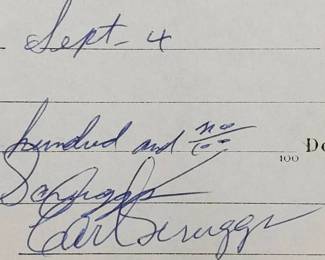 Sept - 4
hundred and no/00 100 Do
Scruggs
Earl Scruggs